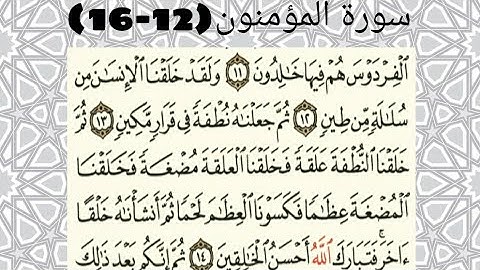 سورة المؤمنون (12-16)
ٱلۡفِرۡدَوۡسَ هُمۡ فِيهَا خَٰلِدُونَ ١١ وَلَقَدۡ خَلَقۡنَا ٱلۡإِنسَٰنَ مِن
سُلَٰلَةٖ مِّن طِينٖ ١٢ ثُمَّ جَعَلۡنَٰهُ نُطۡفَةٗ فِي قَرَارٖ مَّكِينٖ ١٣ ثُمَّ
خَلَقۡنَا ٱلنُّطۡفَةَ عَلَقَةٗ فَخَلَقۡنَا ٱلۡعَلَقَةَ مُضۡغَةٗ فَخَلَقۡنَا
ٱلۡمُضۡغَةَ عِظَٰمٗا فَكَسَوۡنَا ٱلۡعِظَٰمَ لَحۡمٗا ثُمَّ أَنشَأۡنَٰهُ خَلۡقًا
ءَاخَرَۚ فَتَبَارَكَ ٱللَّهُ أَحۡسَنُ ٱلۡخَٰلِقِينَ ١٤ ثُمَّ إِنَّكُم بَعۡدَ ذَٰلِكَ